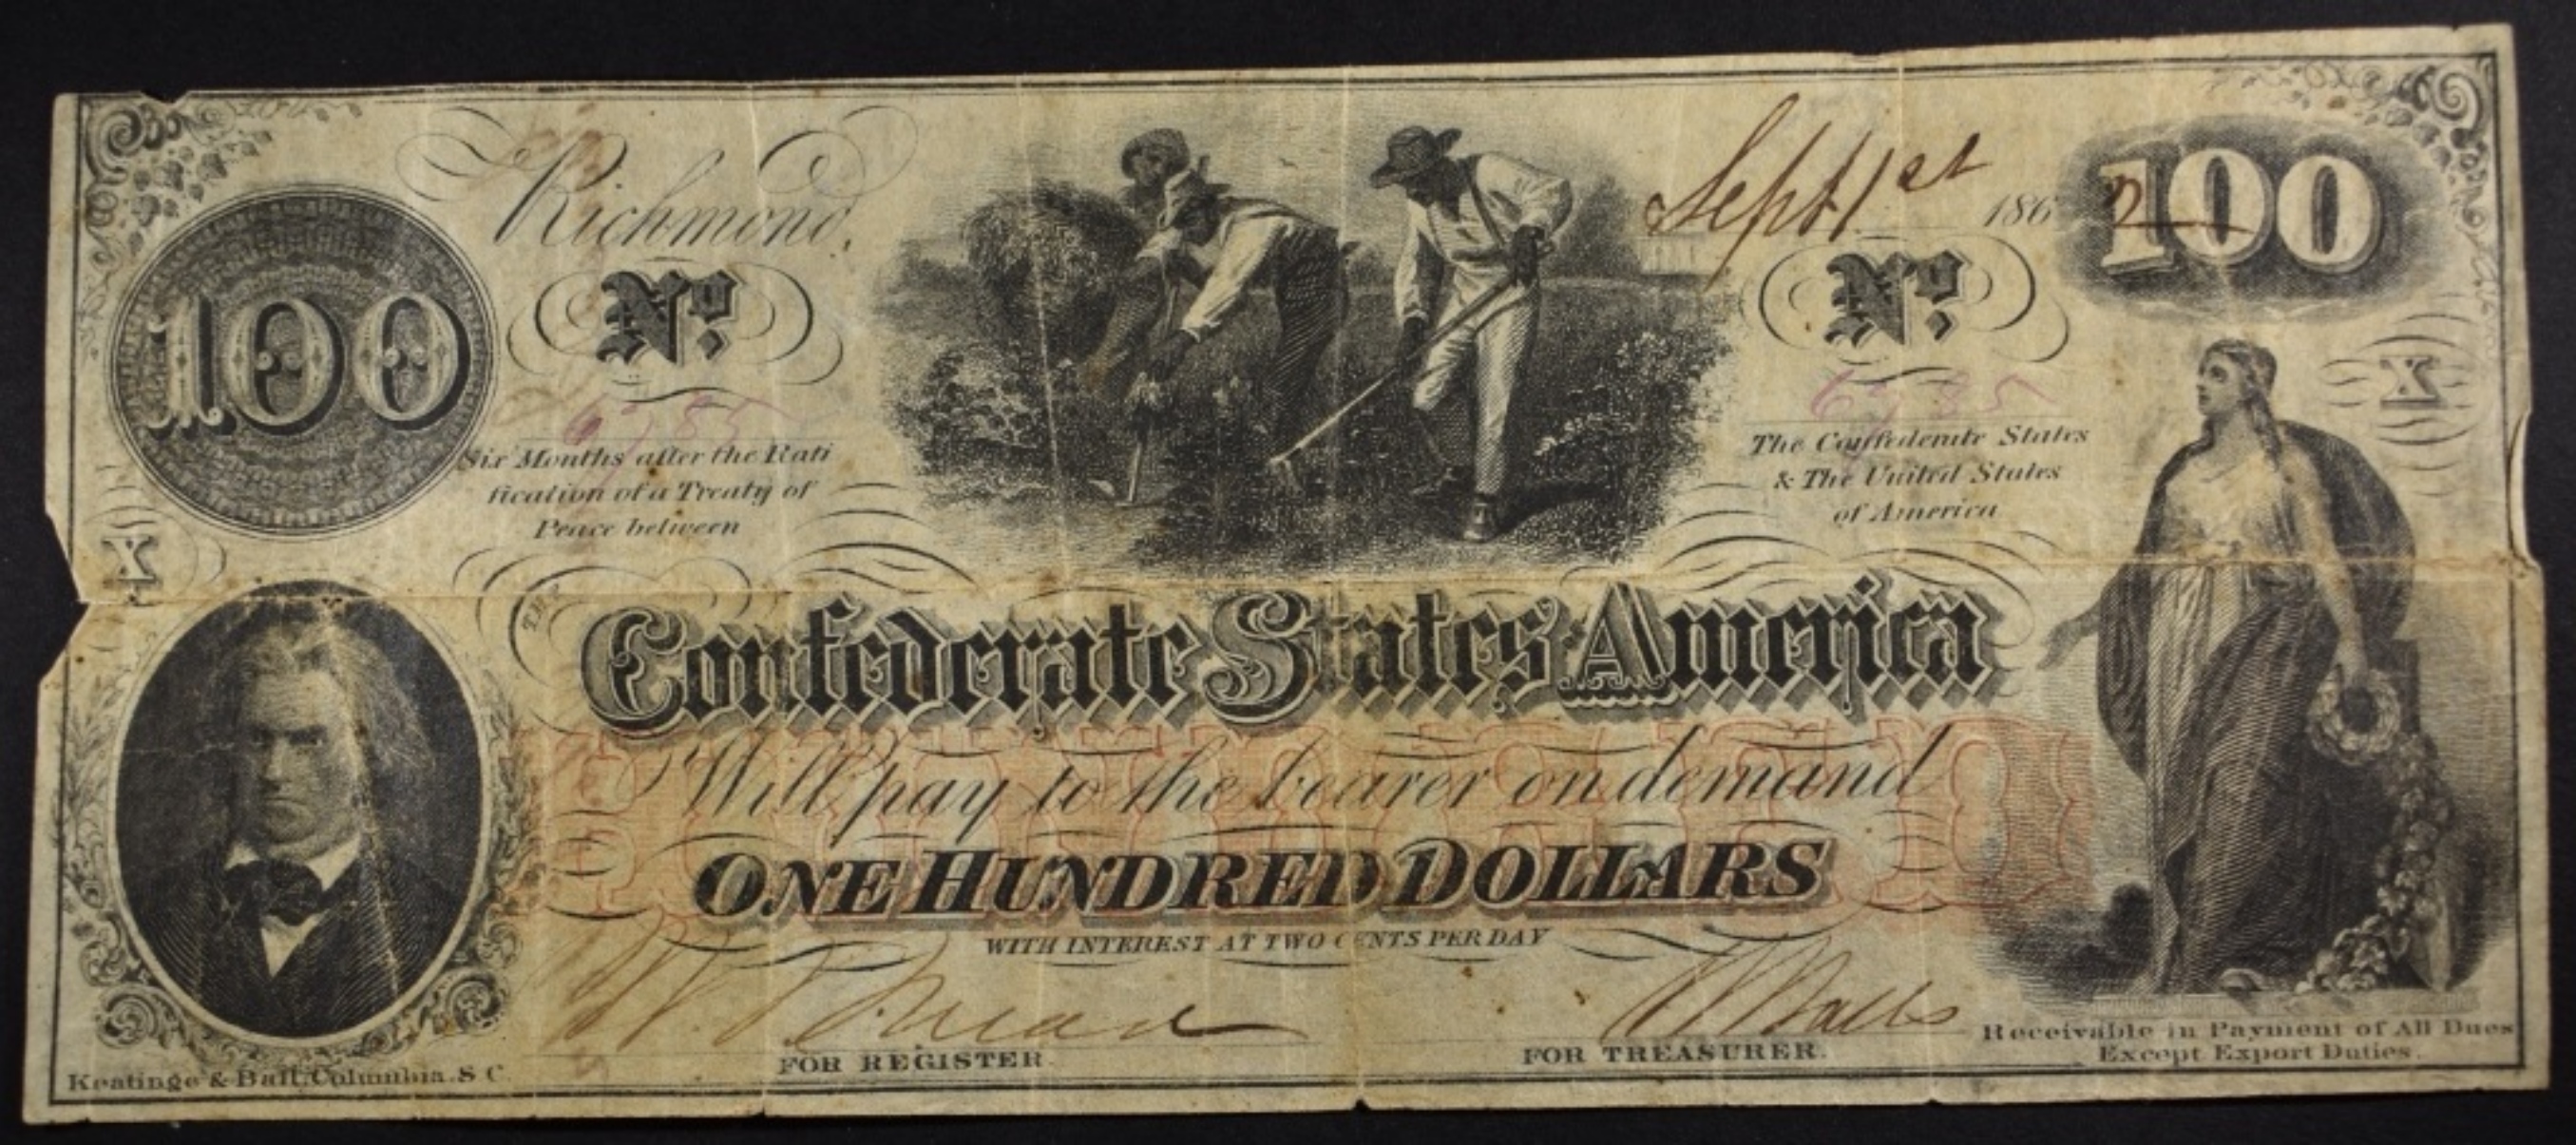 Richmond,
Sept 1st 1862
100
100
No.
No.
X
Six Months after the Rati
fication of a Treaty of
Peace between
The Confederate States
& The United States
of America
X
THE
Confederate States America
Will pay to the bearer on demand
HUNDRED
ONE HUNDRED DOLLARS
WITH INTEREST AT TWO CENTS PER DAY
FOR REGISTER.
FOR TREASURER.
Receivable in Payment of All Dues
Except Export Duties.
Keatinge & Ball, Columbia, S C.